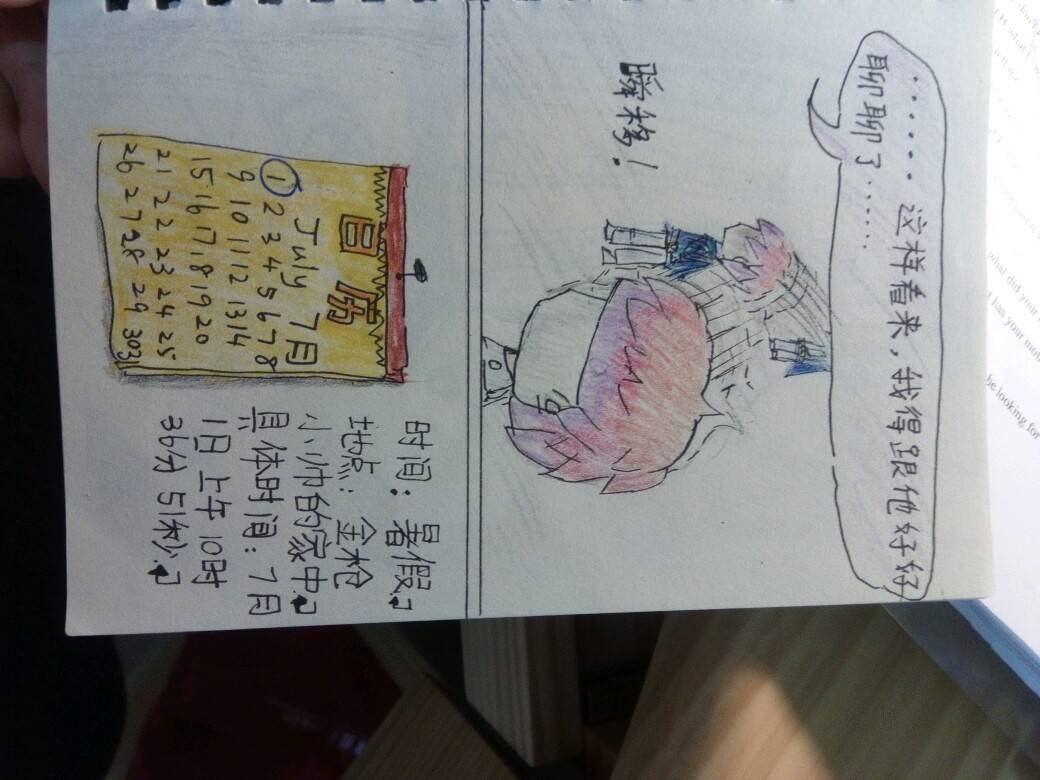 ......这样看来,我得跟他好好
聊聊了......
瞬移!
日历
July 7月
1 2 3 4 5 6 7 8
9 10 11 12 13 14
15 16 17 18 19 20
21 22 23 24 25
26 27 28 29 30 31
时间:暑假.↲
地点:金枪
小帅的家中.↲
具体时间:7月
1日上午10时
36分51秒.↲
what did your
has your
be looking for